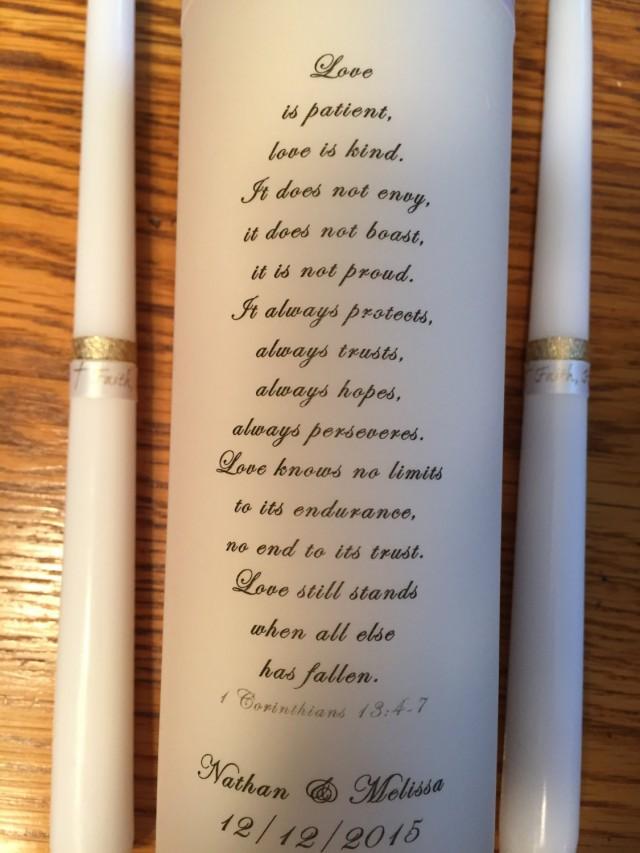 Love
is patient,
love is kind.
It does not envy,
it does not boast,
it is not proud.
It always protects,
always trusts,
always hopes,
always perseveres.
Love knows no limits
to its endurance,
no end to its trust.
Love still stands
when all else
has fallen.
1 Corinthians 13:4-7
Nathan & Melissa
12/12/2015
Faith,
Faith,